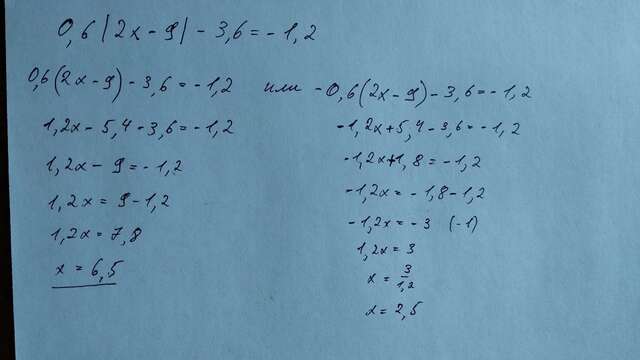 0,6|2x-9|-3,6=-1,2
0,6(2x-9)-3,6=-1,2 или -0,6(2x-9)-3,6=-1,2
1,2x-5,4-3,6=-1,2
1,2x-9=-1,2
1,2x=9-1,2
1,2x=7,8
x=6,5
-1,2x+5,4-3,6=-1,2
-1,2x+1,8=-1,2
-1,2x=-1,8-1,2
-1,2x=-3 (-1)
1,2x=3
x=3/1,2
x=2,5